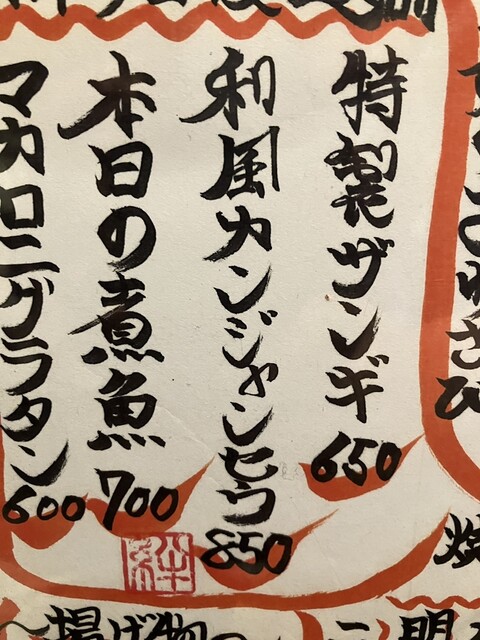 特製ザンギ 650
和風カンジャンセウ 850
本日の煮魚 700
マカロニグラタン 600
わさび
焼
～揚げ物～
明